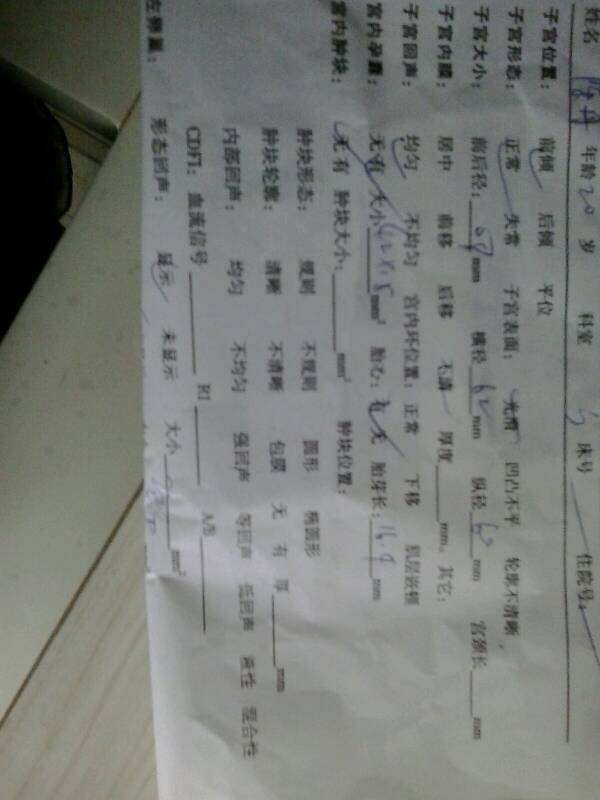 姓名 年龄20岁 科室 床号 住院号:
子宫位置: 前倾 后倾 平位
子宫形态: 正常 失常 子宫表面: 光滑 凹凸不平 轮廓不清晰
子宫大小: 前后径: mm 横径 62 mm 纵径 60 mm 宫颈长 mm
子宫内膜: 居中 前移 后移 不清 厚度 mm。其它:
子宫回声: 均匀 不均匀 宫内环位置: 正常 下移 肌层嵌顿
宫内孕囊: 无 有 大小 42x15 mm² 胎心: 有 无 胎芽长: mm
宫内肿块: 无 有 肿块大小: mm² 肿块位置:
肿块形态: 规则 不规则 圆形 椭圆形
肿块轮廓: 清晰 不清晰 包膜 无 有 厚 mm
内部回声: 均匀 不均匀 强回声 等回声 低回声 液性 混合性
CDFI: 血流信号 RI A/B
左卵巢: 形态回声: 显示 未显示 大小 mm²